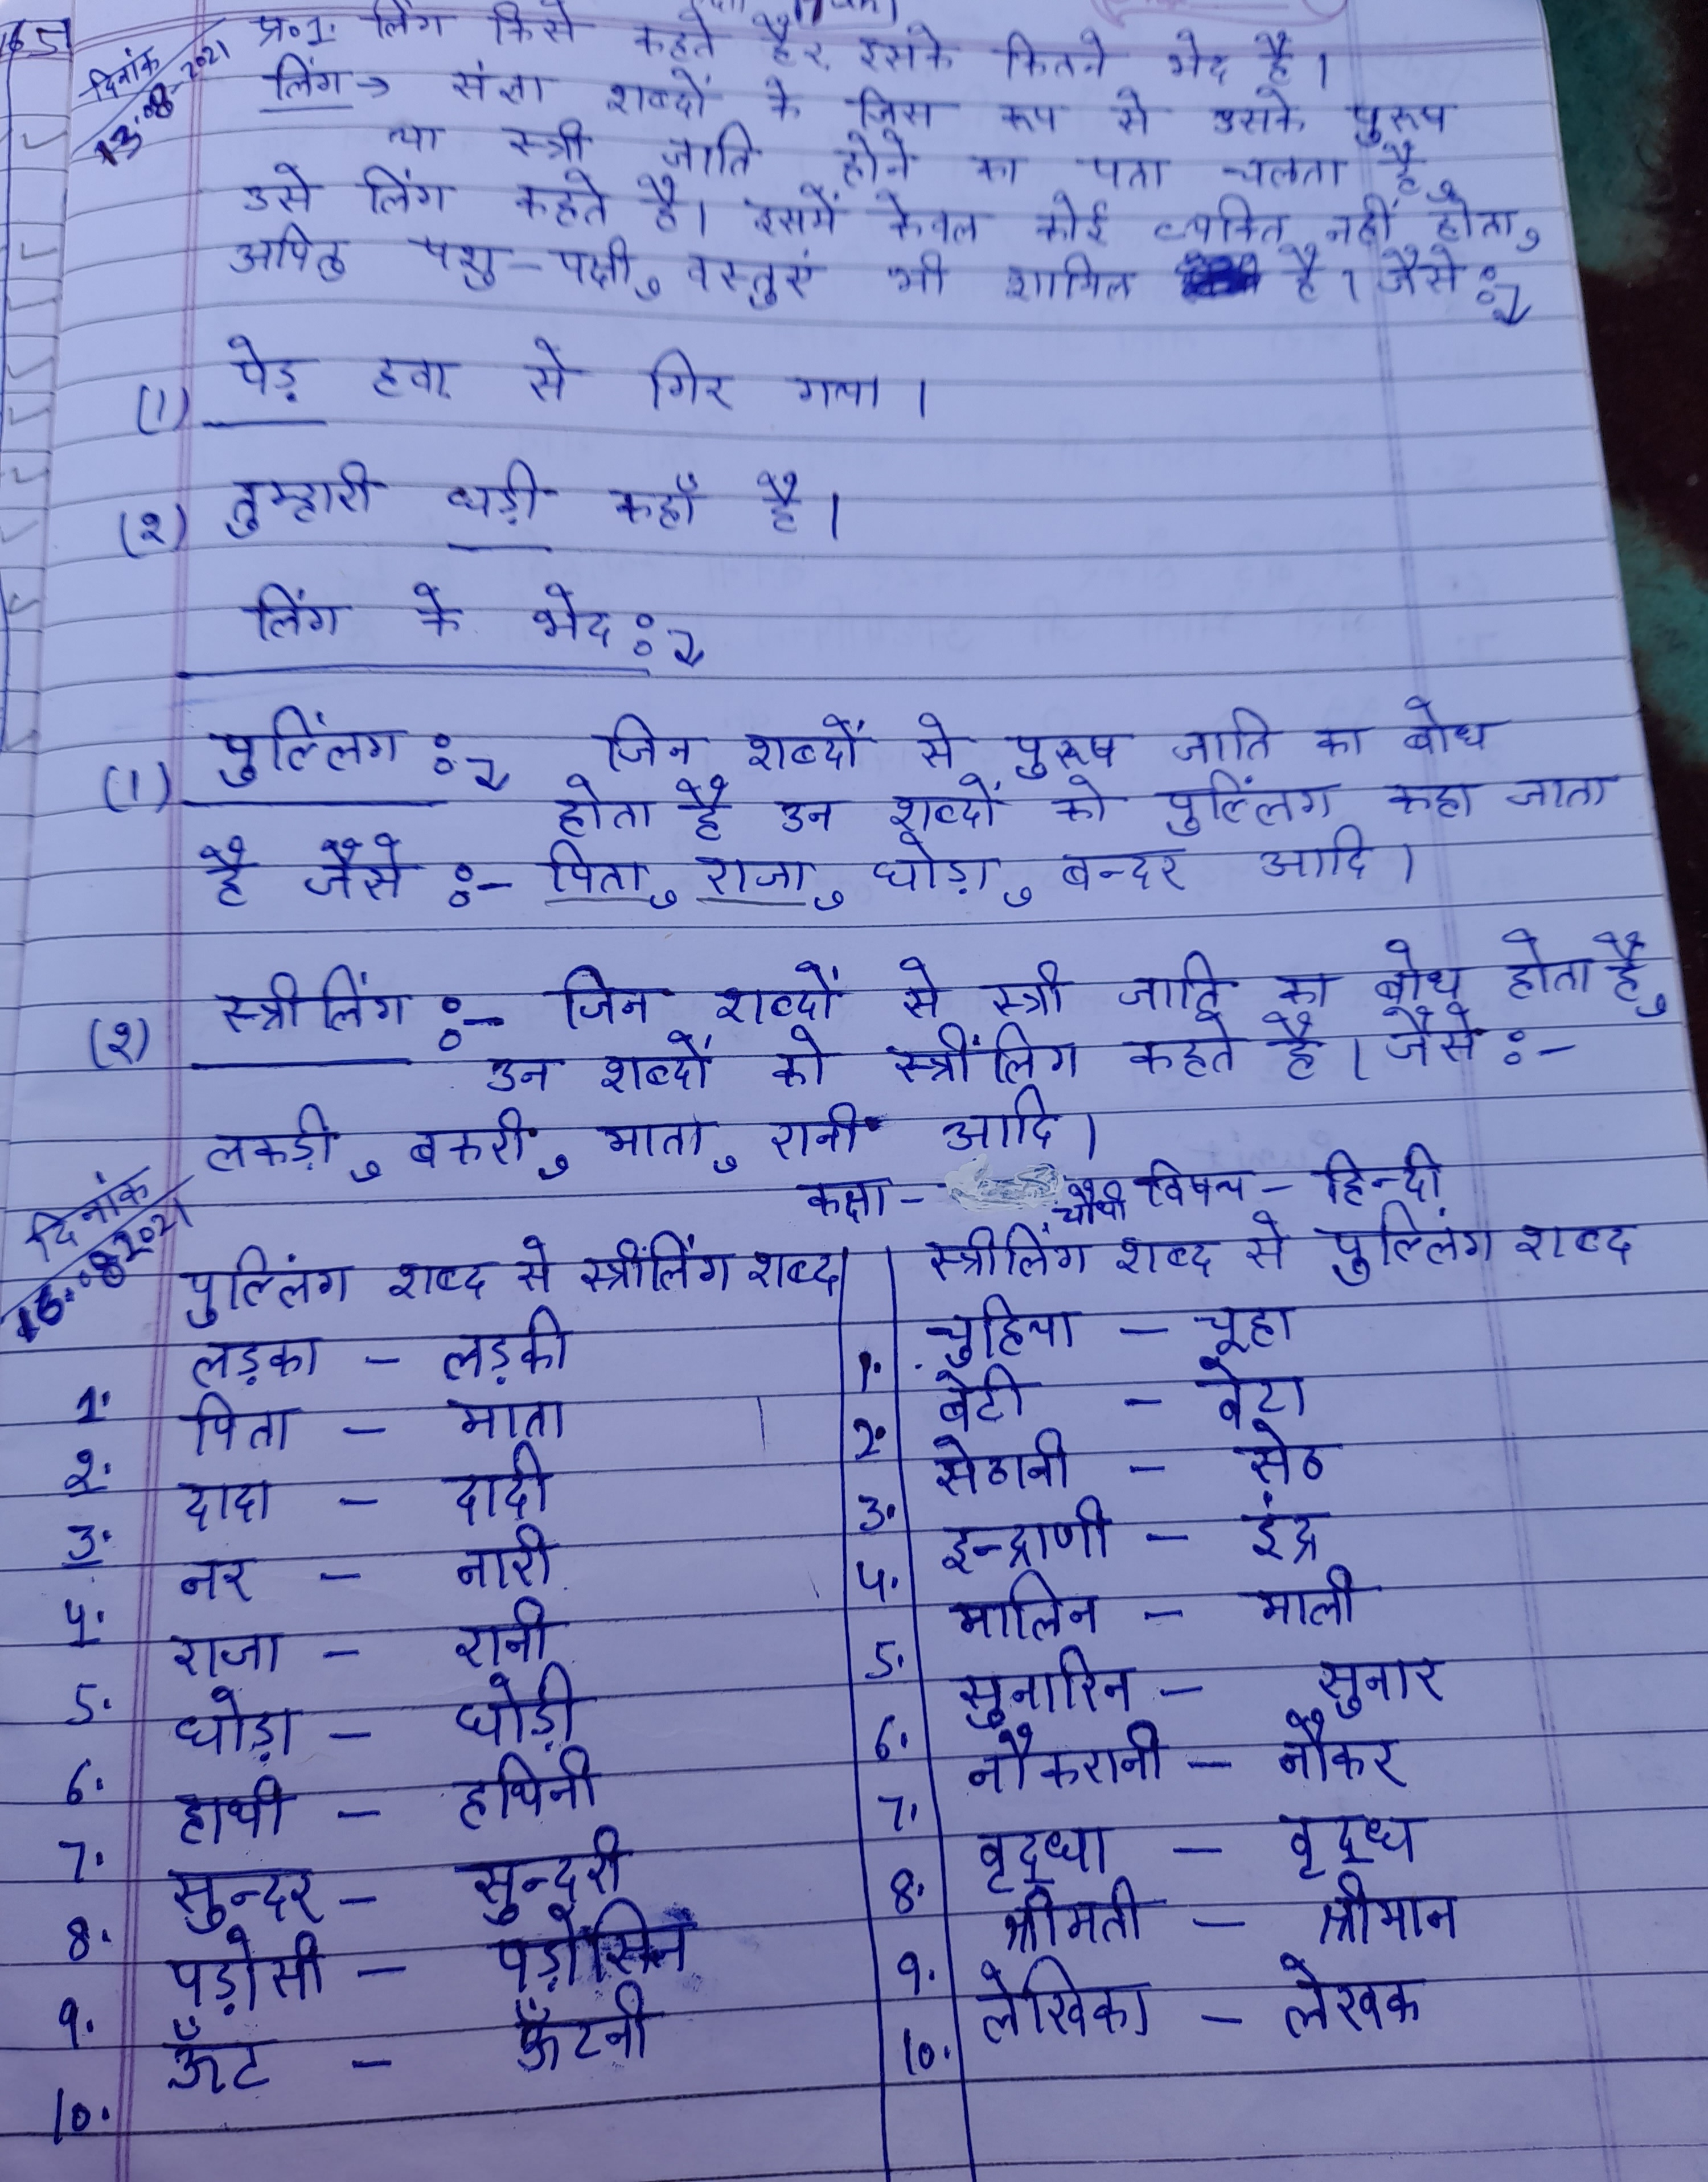 दिनांक
13.08.2021
प्र०1. लिंग किसे कहते है, इसके कितने भेद है।
लिंग → संज्ञा शब्दों के जिस रूप से उसके पुरूष
या स्त्री जाति होने का पता चलता है,
उसे लिंग कहते है। इसमें केवल कोई व्यक्ति नहीं होता,
अपितु पशु-पक्षी, वस्तुएं भी शामिल है। जैसे :-
(1) पेड़ हवा से गिर गया।
(२) तुम्हारी घड़ी कहाँ है।
लिंग के भेद :-
(1) पुल्लिंग :- जिन शब्दों से पुरूष जाति का बोध
होता है उन शब्दों को पुल्लिंग कहा जाता
है जैसे :- पिता, राजा, घोड़ा, बन्दर आदि।
(२) स्त्रीलिंग :- जिन शब्दों से स्त्री जाति का बोध होता है,
उन शब्दों को स्त्रींलिग कहते है। जैसे :-
लकड़ी, बकरी, माता, रानी आदि।
दिनांक
16.08.2021
कक्षा - चौथी विषय - हिन्दी
पुल्लिंग शब्द से स्त्रींलिंग शब्द
1. लड़का - लड़की
2. पिता - माता
3. दादा - दादी
4. नर - नारी
5. राजा - रानी
6. घोड़ा - घोड़ी
7. हाथी - हथिनी
8. सुन्दर - सुन्दरी
9. पड़ोसी - पड़ोसिन
10. ऊँट - ऊँटनी
स्त्रीलिंग शब्द से पुल्लिंग शब्द
1. चुहिया - चूहा
2. बेटी - बेटा
3. सेठानी - सेठ
4. इन्द्राणी - इंद्र
5. मालिन - माली
6. सुनारिन - सुनार
7. नौकरानी - नौकर
8. वृद्धा - वृद्ध
9. श्रीमती - श्रीमान
10. लेखिका - लेखक